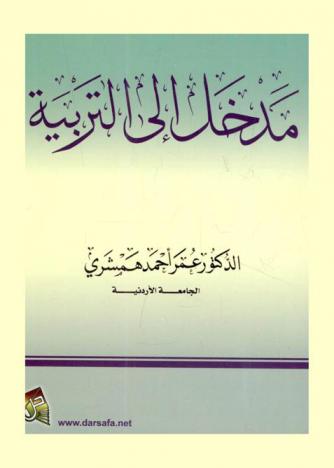 مدخل إلى التربية
الدكتور عمر أحمد همشري
الجامعة الأردنية
www.darsafa.net